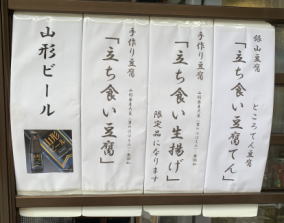 銀山豆腐
ところてん豆腐
「立ち食い豆腐てん」
手作り豆腐
「立ち食い生揚げ」
限定品になります
手作り豆腐
「立ち食い豆腐」
山形ビール